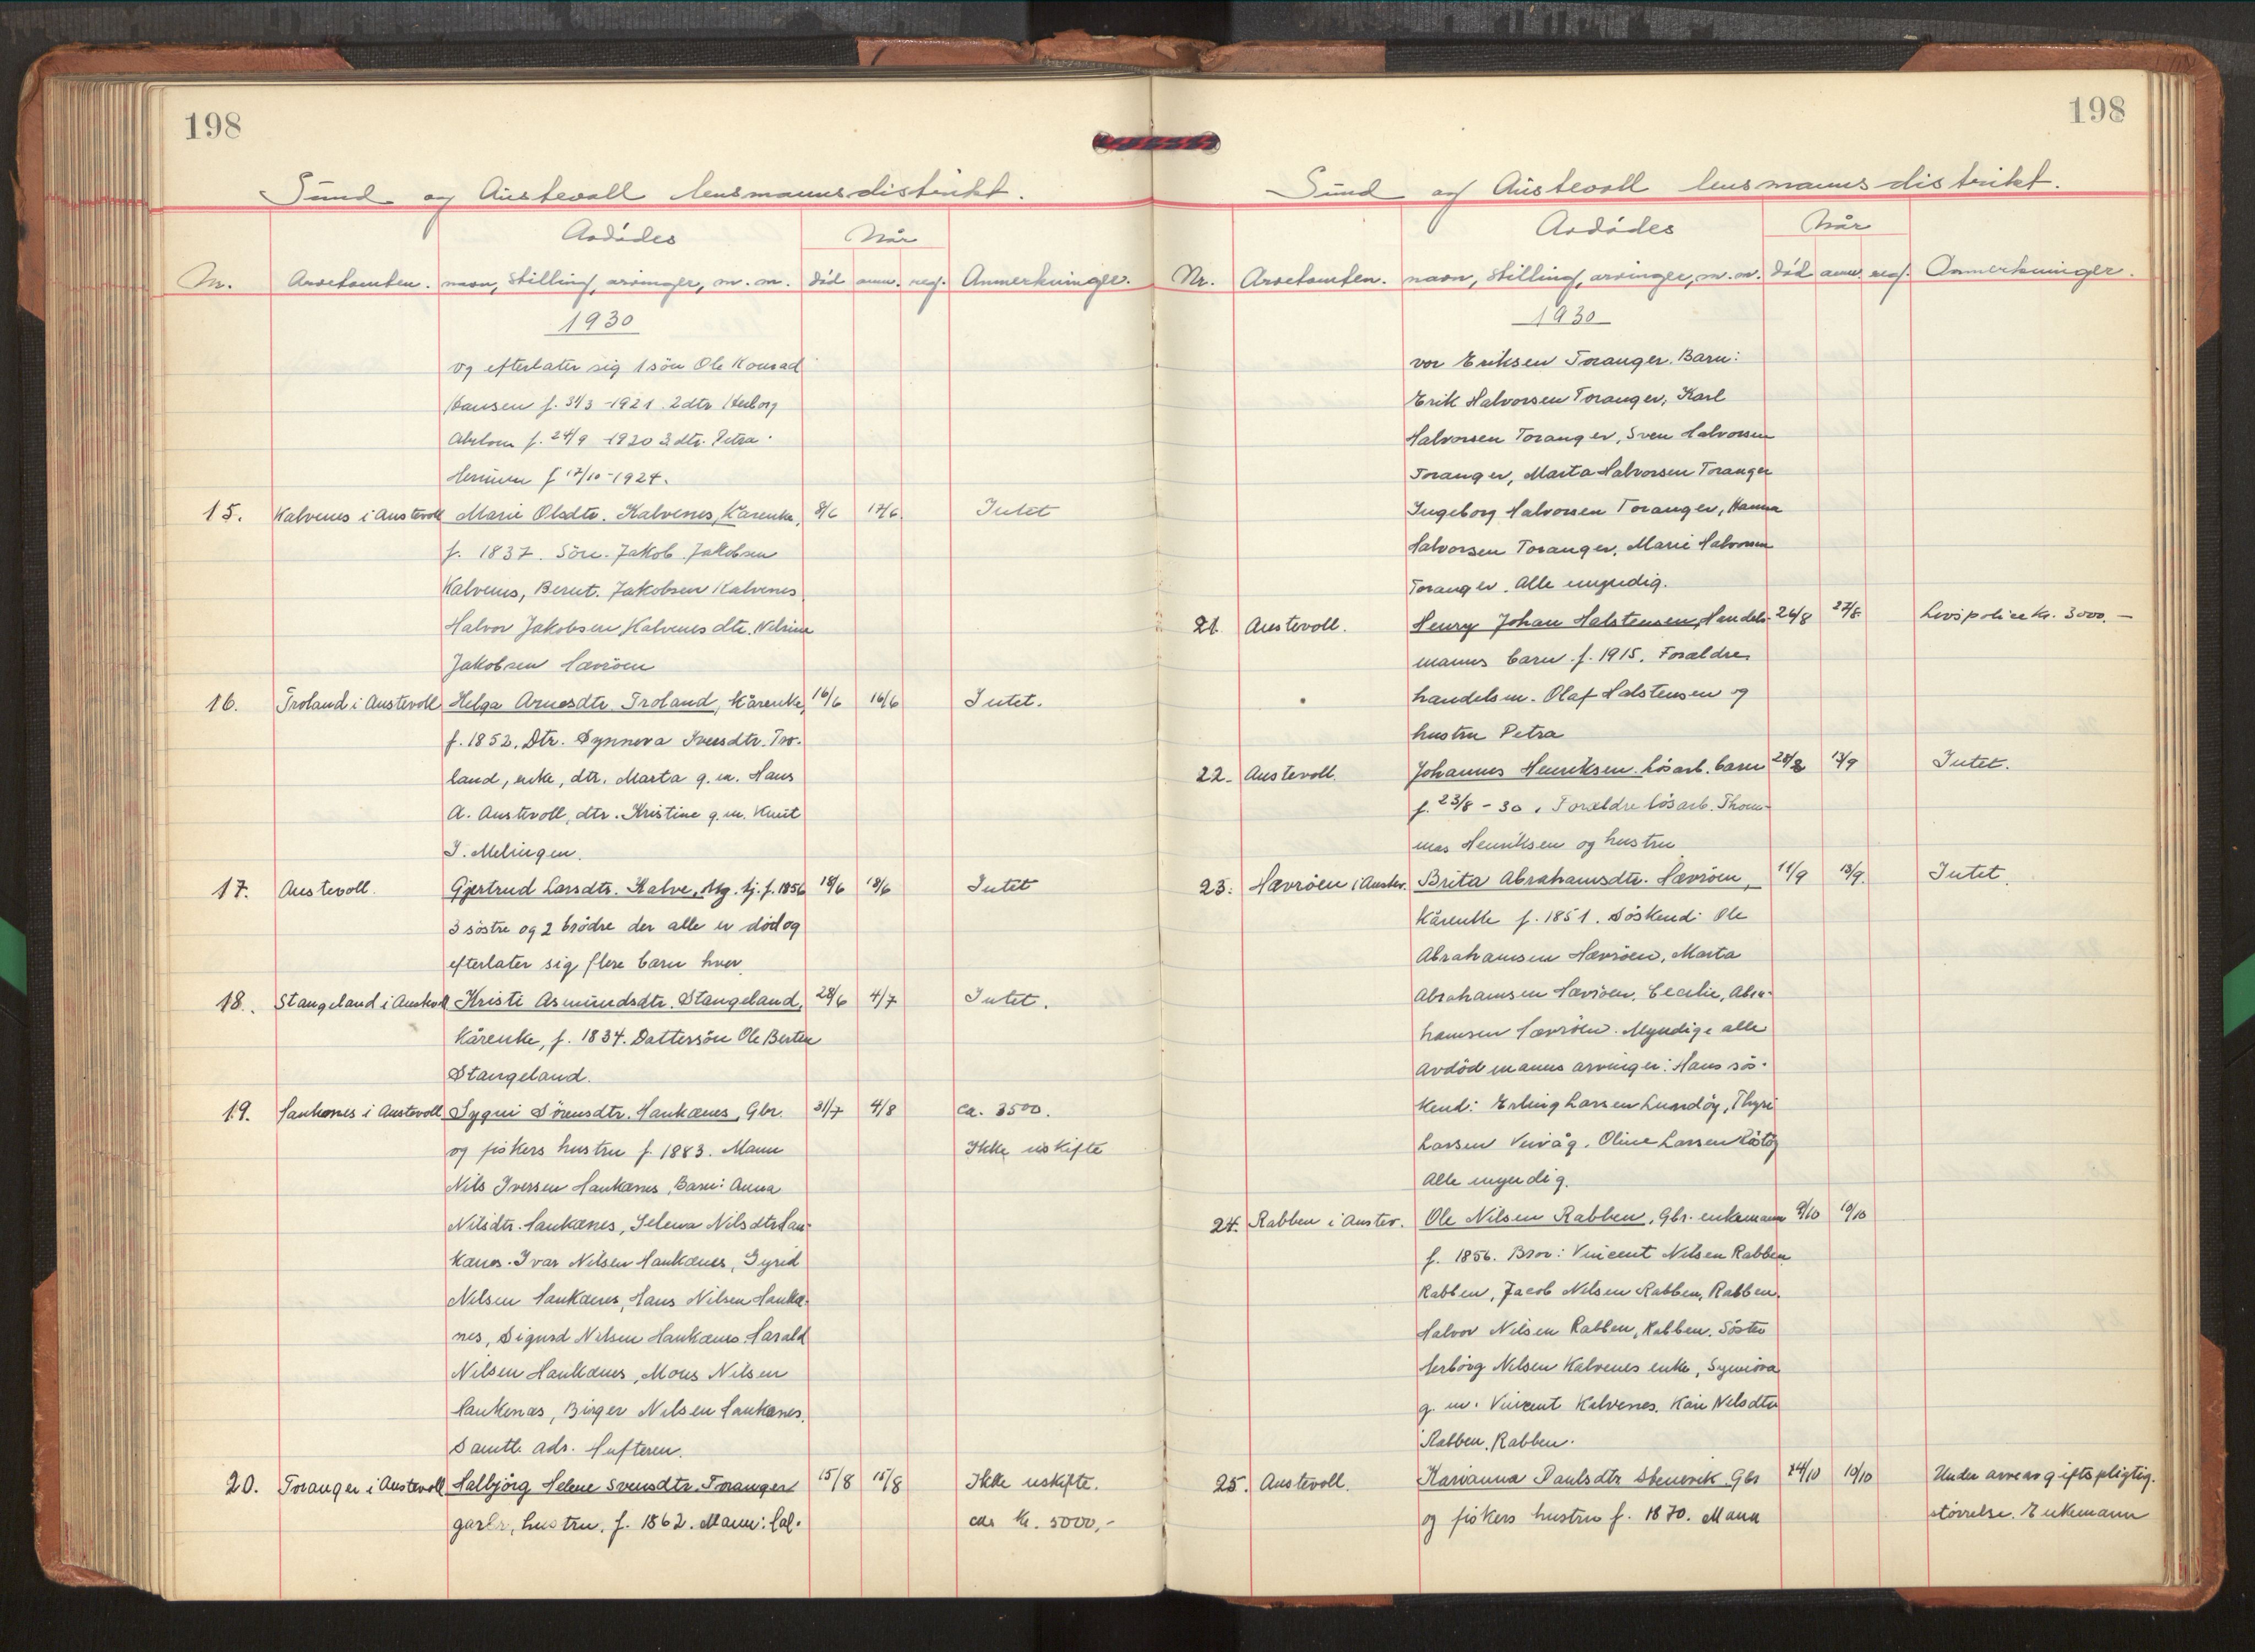 198
Sund og Austevoll lensmannsdistrikt.
Avdødes
Når
Nr. Arvetomten. navn, stilling, arvinger, m. m. død anm. reg. Anmerkninger.
1930
og efterlater sig 1 sön Ole Konrad
Hansen f. 31/3 - 1921. 2 dtr Herborg
f. 24/9 1920 3 dtr. Petra
f 17/10 - 1924.
15. Kalvenes i Austevoll Marie Olsdtr. Kalvenes, Kårenke, 8/6 17/6. Intet
f. 1837. Sön. Jakob Jakobsen
Kalvenes, Bernt. Jakobsen Kalvenes
Halvor Jakobsen Kalvenes dtr. Nelsine
Jakobsen Hævröen
16. Troland i Austevoll Helga Arnesdtr Troland, Kårenke, 16/6 16/6 Intet.
f. 1852. Dtr. Synneva Iversdtr. Tro-
land, enke, dtr. Marta g. m. Hans
A. Austevoll, dtr. Kristine g. m. Knut
I. Melingen.
17. Austevoll. Gjertrud Larsdtr. Kalve, ug. tj. f. 1856 18/6 18/6 Intet
3 söstre og 2 brödre der alle er död og
efterlater sig flere barn hver.
18. Stangeland i Austevoll Kristi Asmundsdtr. Stangeland, 28/6 4/7 Intet.
Kårenke, f. 1834. Dattersön Ole Berten
Stangeland.
19. Haukanes i Austevoll Sygni Sörensdtr. Haukanes, Gbr. 31/7 4/8 ca. 3500.
og fiskers hustru f. 1883. Mann Ikke uskifte
Nils Iversen Haukanes, Barn: Anna
Nilsdtr. Haukanes, Selena Nilsdtr Hau-
kanes. Ivar Nilsen Haukanes, Gyrid
Nilsen Haukanes, Hans Nilsen Hauka-
nes, Sigurd Nilsen Haukanes Harald
Nilsen Haukanes, Mons Nilsen
Haukenas, Birger Nilsen Haukanes.
Samtl. adr. Hufteren.
20. Toranger i Austevoll Halbjörg Helene Svensdtr. Toranger 15/8 15/8 Ikke uskifte.
garbr, hustru. f. 1862. Mann: Hal- ca kr. 5000,-
198
Sund og Austevoll lensmannsdistrikt.
Avdødes
Når
Nr. Arvetomten. navn, stilling, arvinger, m. m. død anm. reg. Anmerkninger.
1930
vor Eriksen Toranger. Barn:
Erik Halvorsen Toranger, Karl
Halvorsen Toranger, Sven Halvorsen
Toranger, Marta Halvorsen Toranger
Ingeborg Halvorsen Toranger, Hanna
Halvorsen Toranger, Marie Halvorsen
Toranger. Alle umyndig.
21. Austevoll. Henry Johan Halstensen, Handels- 26/8 27/8 Livspolice kr. 3000.-
manns barn. f. 1915. Foreldre
handelsm. Olaf Halstensen og
hustru Petra
22. Austevoll. Johannes Henriksen. lösarb. barn 28/8 13/9 Intet.
f. 23/8 - 30. Foreldre lösarb. Thom-
mas Henriksen og hustru
23. Hævröen i Austev. Brita Abrahamsdtr. Hævröen, 11/9 13/9. Intet.
Kårenke f. 1851. Söskend: Ole
Abrahamsen Hævröen, Marta
Abrahamsen Hævröen, Cecilie, Abra-
hamsen Hævröen. Myndige alle
Avdöd manns arvinger: Hans sös-
kend: Erling Larsen Lundöy, Thyri
Larsen Veivåg. Oline Larsen
Alle myndig.
24. Rabben i Austev. Ole Nilsen Rabben, Gbr. enkemann 9/10 10/10
f. 1856. Bror: Vincent Nilsen Rabben
Rabben, Jacob Nilsen Rabben, Rabben.
Halvor Nilsen Rabben, Rabben. Söster
Herbörg Nilsen Kalvenes enke, Synnöva
g. m. Vincent Kalvenes. Kari Nilsdtr
Rabben, Rabben.
25. Austevoll. Karianna Paulsdtr Stenevik Gbr 24/10 10/10 Under arveavgiftspligtig.
og fiskers hustru f. 1870. Mann störrelse. Enkemann